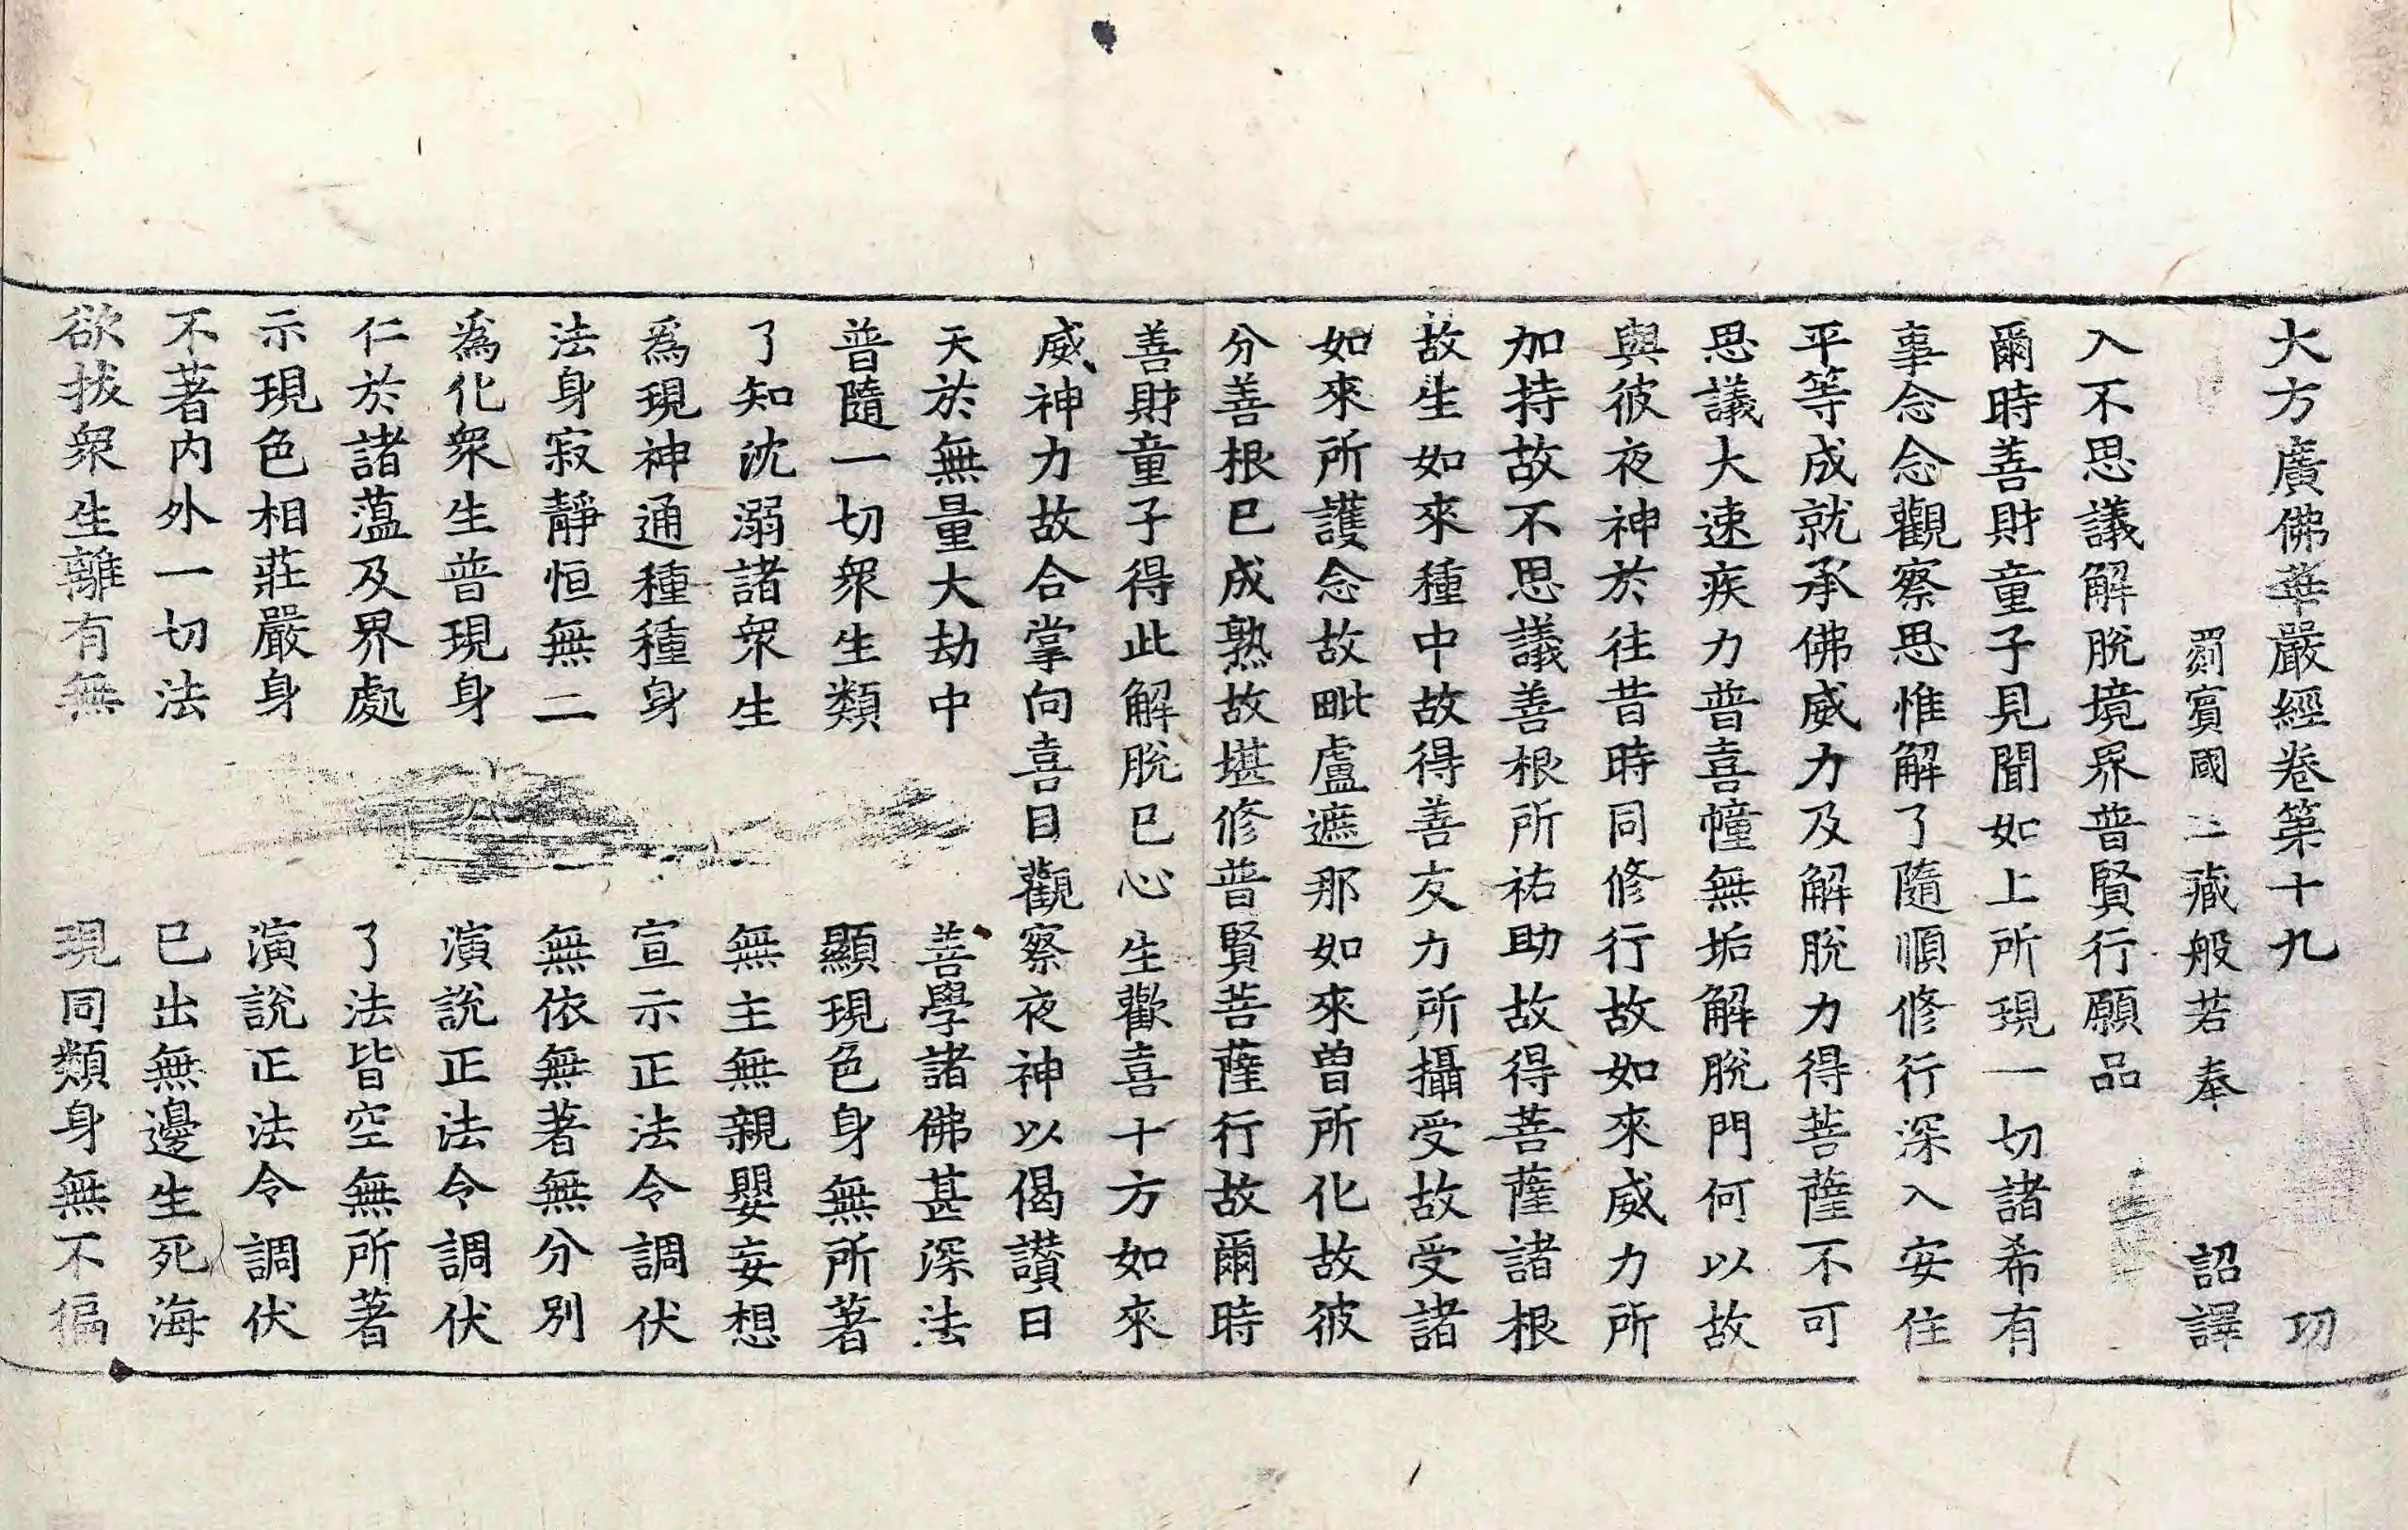 大方廣佛華嚴經卷第十九 㓛
罽賓國三藏般若奉 詔譯
入不思議解脫境界普賢行願品
爾時善財童子見聞如上所現一切諸希有
事念念觀察思惟解了隨順修行深入安住
平等成就承佛威力及解脫力得菩薩不可
思議大速疾力普喜幢無垢解脫門何以故
與彼夜神於往昔時同修行故如來威力所
加持故不思議善根所祐助故得菩薩諸根
故生如來種中故得善友力所攝受故受諸
如來所護念故毗盧遮那如來曽所化故彼
分善根已成熟故堪修普賢菩薩行故爾時
善財童子得此解脫已心生歡喜十方如來
威神力故合掌向喜目觀察夜神以偈讃曰
天於無量大劫中 善學諸佛甚深法
普隨一切衆生類 顯現色身無所著
了知沈溺諸衆生 無主無親嬰妄想
爲現神通種種身 宣示正法令調伏
法身寂靜恒無二 無依無著無分別
爲化衆生普現身 演說正法令調伏
仁於諸蕰及界處 了法皆空無所著
示現色相莊嚴身 演說正法令調伏
不著内外一切法 已出無邊生死海
欲拔衆生離有無 現同類身無不徧